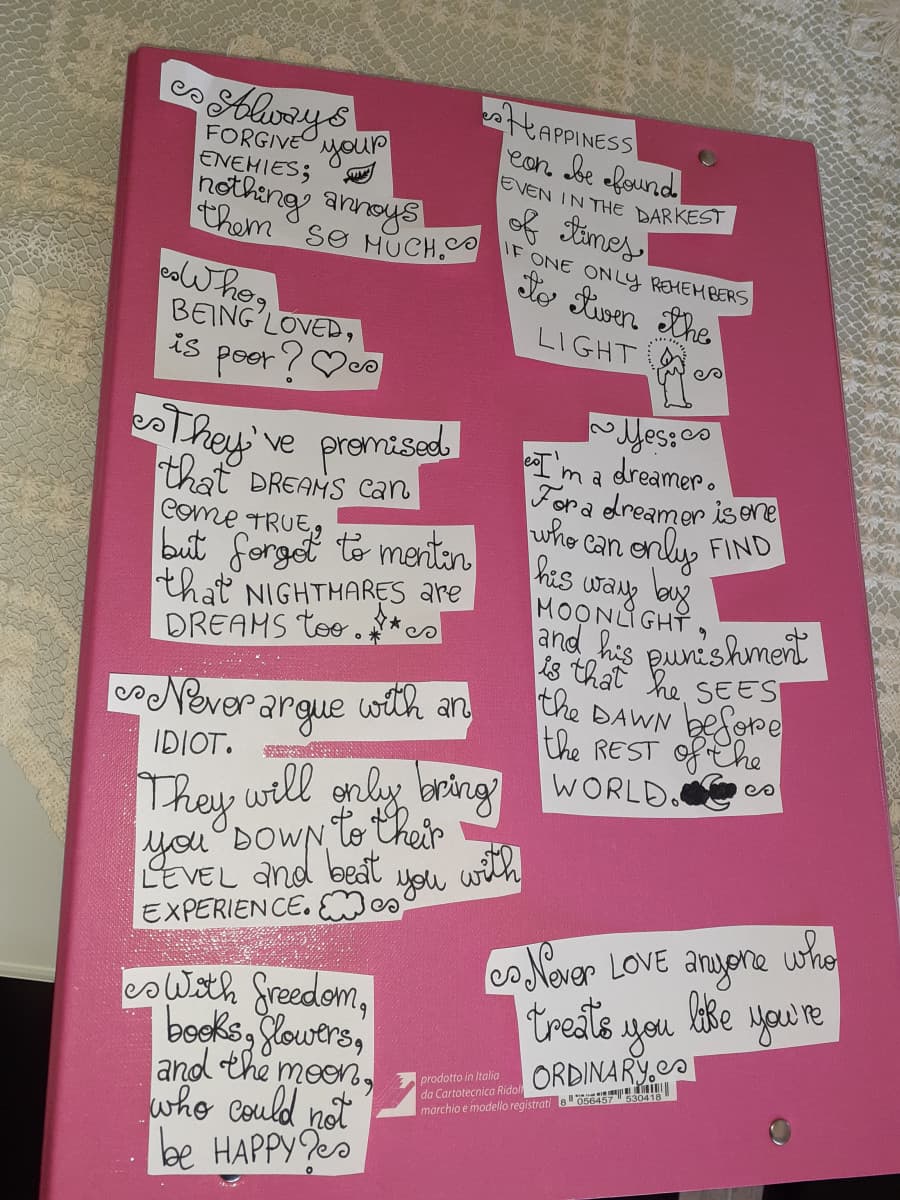 Always
FORGIVE your
ENEMIES;
nothing annoys
them SO MUCH.
Who,
BEING LOVED,
is poor?
They've promised
that DREAMS can
come TRUE,
but forgot to mentin
that NIGHTMARES are
DREAMS too.
Never argue with an
IDIOT.
They will only bring
you DOWN to their
LEVEL and beat you with
EXPERIENCE.
With freedom,
books, flowers,
and the moon,
who could not
be HAPPY?
HAPPINESS
can be found
EVEN IN THE DARKEST
of times,
IF ONE ONLY REMEMBERS
to turn the
LIGHT
Yes:
I'm a dreamer.
For a dreamer is one
who can only FIND
his way by
MOONLIGHT,
and his punishment
is that he SEES
the DAWN before
the REST of the
WORLD.
Never LOVE anyone who
treats you like you're
ORDINARY.
prodotto in Italia
da Cartotecnica Ridol
marchio e modello registrati
8 056457 530418